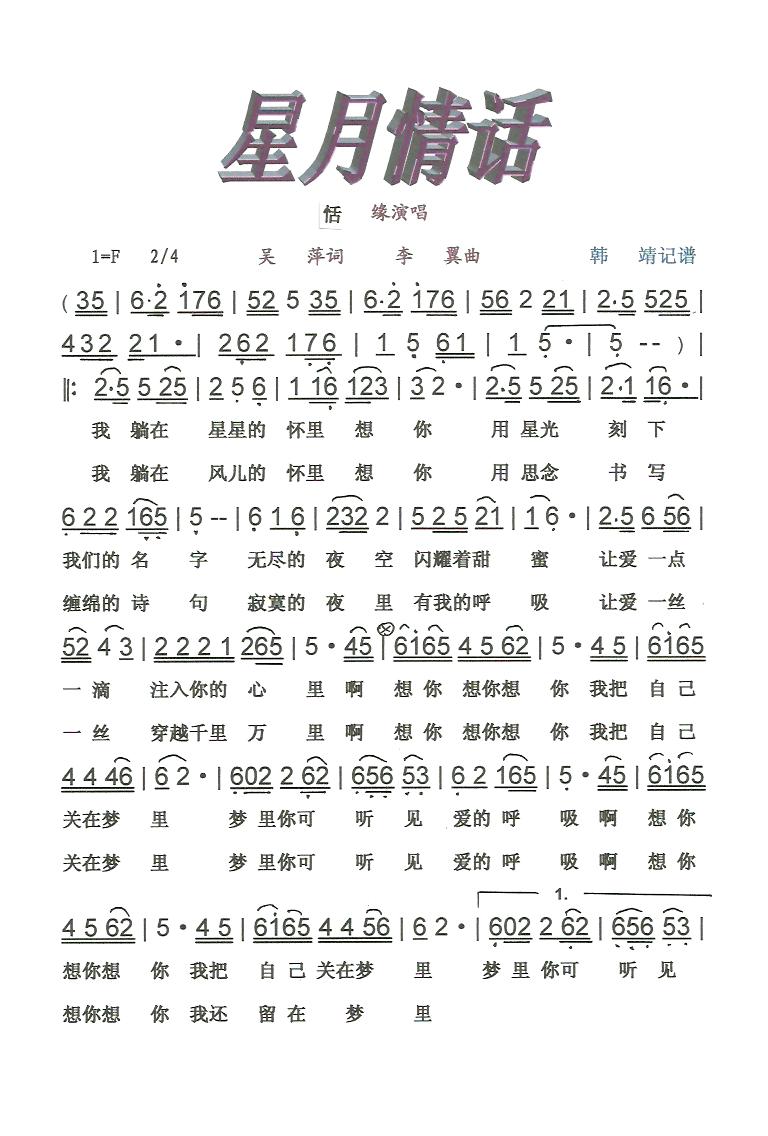 星月情话
恬 缘演唱
1=F 2/4 吴 萍词 李 翼曲 韩 靖记谱
( 35 | 6·2 176 | 52 5 35 | 6·2 176 | 56 2 21 | 2·5 525 |
432 21 · | 262 176 | 1 5 61 | 1 5 · | 5 -- ) |
‖: 2·5 5 25 | 2 5 6 | 1 16 123 | 3 2 · | 2·5 5 25 | 2·1 16 · |
我 躺在 星星的 怀里 想 你 用 星光 刻 下
我 躺在 风儿的 怀里 想 你 用 思念 书 写
6 2 2 165 | 5 -- | 6 1 6 | 232 2 | 5 2 5 21 | 1 6 · | 2·5 6 56 |
我们的 名 字 无尽的 夜 空 闪耀着甜 蜜 让爱 一点
缠绵的 诗 句 寂寞的 夜 里 有我的呼 吸 让爱 一丝
52 4 3 | 2 2 2 1 265 | 5 · 45 | 6165 4 5 62 | 5 · 4 5 | 6165
一 滴 注入你的 心 里 啊 想 你 想你想 你 我把 自己
一 丝 穿越千里 万 里 啊 想 你 想你想 你 我把 自己
4 4 46 | 6 2 · | 602 2 62 | 656 53 | 6 2 165 | 5 · 45 | 6165
关在梦 里 梦 里你可 听 见 爱的 呼 吸 啊 想你
关在梦 里 梦 里你可 听 见 爱的 呼 吸 啊 想你
1.
4 5 62 | 5 · 4 5 | 6165 4 4 56 | 6 2 · | 602 2 62 | 656 53 |
想你想 你 我把 自 己 关在梦 里 梦 里 你可 听 见
想你想 你 我还 留 在 梦 里